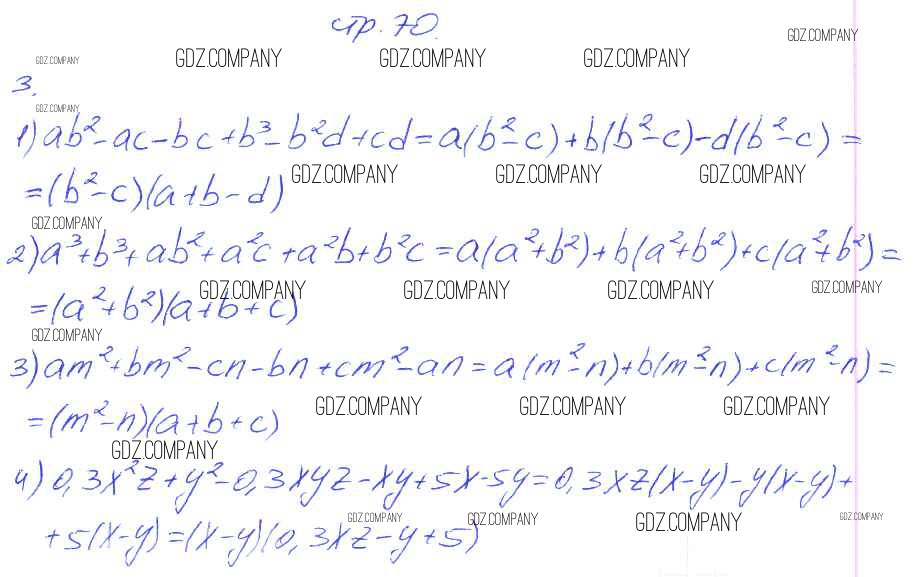 стр. 70.
GDZ.COMPANY
GDZ.COMPANY GDZ.COMPANY GDZ.COMPANY GDZ.COMPANY
3.
GDZ.COMPANY
1) ab² - ac - bc + b³ - b²d + cd = a(b² - c) + b(b² - c) - d(b² - c) =
GDZ.COMPANY GDZ.COMPANY GDZ.COMPANY
= (b² - c)(a + b - d)
GDZ.COMPANY
2) a³ + b³ + ab² + a²c + a²b + b²c = a(a² + b²) + b(a² + b²) + c(a² + b²) =
GDZ.COMPANY GDZ.COMPANY GDZ.COMPANY GDZ.COMPANY
= (a² + b²)(a + b + c)
GDZ.COMPANY
3) am² + bm² - cn - bn + cm² - an = a(m² - n) + b(m² - n) + c(m² - n) =
GDZ.COMPANY GDZ.COMPANY GDZ.COMPANY
= (m² - n)(a + b + c)
GDZ.COMPANY
4) 0,3x²z + y² - 0,3xyz - xy + 5x - 5y = 0,3xz(x - y) - y(x - y) +
GDZ.COMPANY GDZ.COMPANY GDZ.COMPANY GDZ.COMPANY
+ 5(x - y) = (x - y)(0,3xz - y + 5)